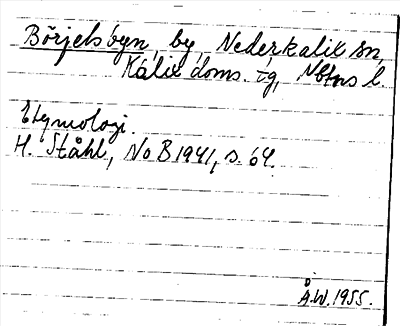 Börjelsbyn, by, Nederkalix sn,
Kalix doms. tg, Nbtns l.
Etymologi.
H. Ståhl, NoB 1941, s. 64.
Å.W. 1955.